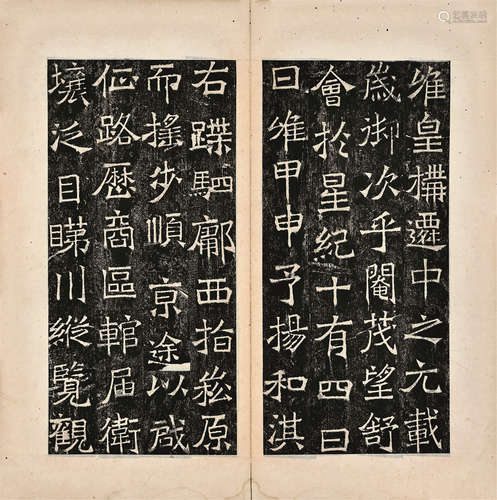 惟皇構遷中之元載
歲御次乎閹茂望舒
會於星紀十有四日
日惟甲申予揚和淇
右蹀駟鄘西指崧原
而搖步順京途以啟
征路歷商區輨屆衛
壤泛目睇川縱覽觀